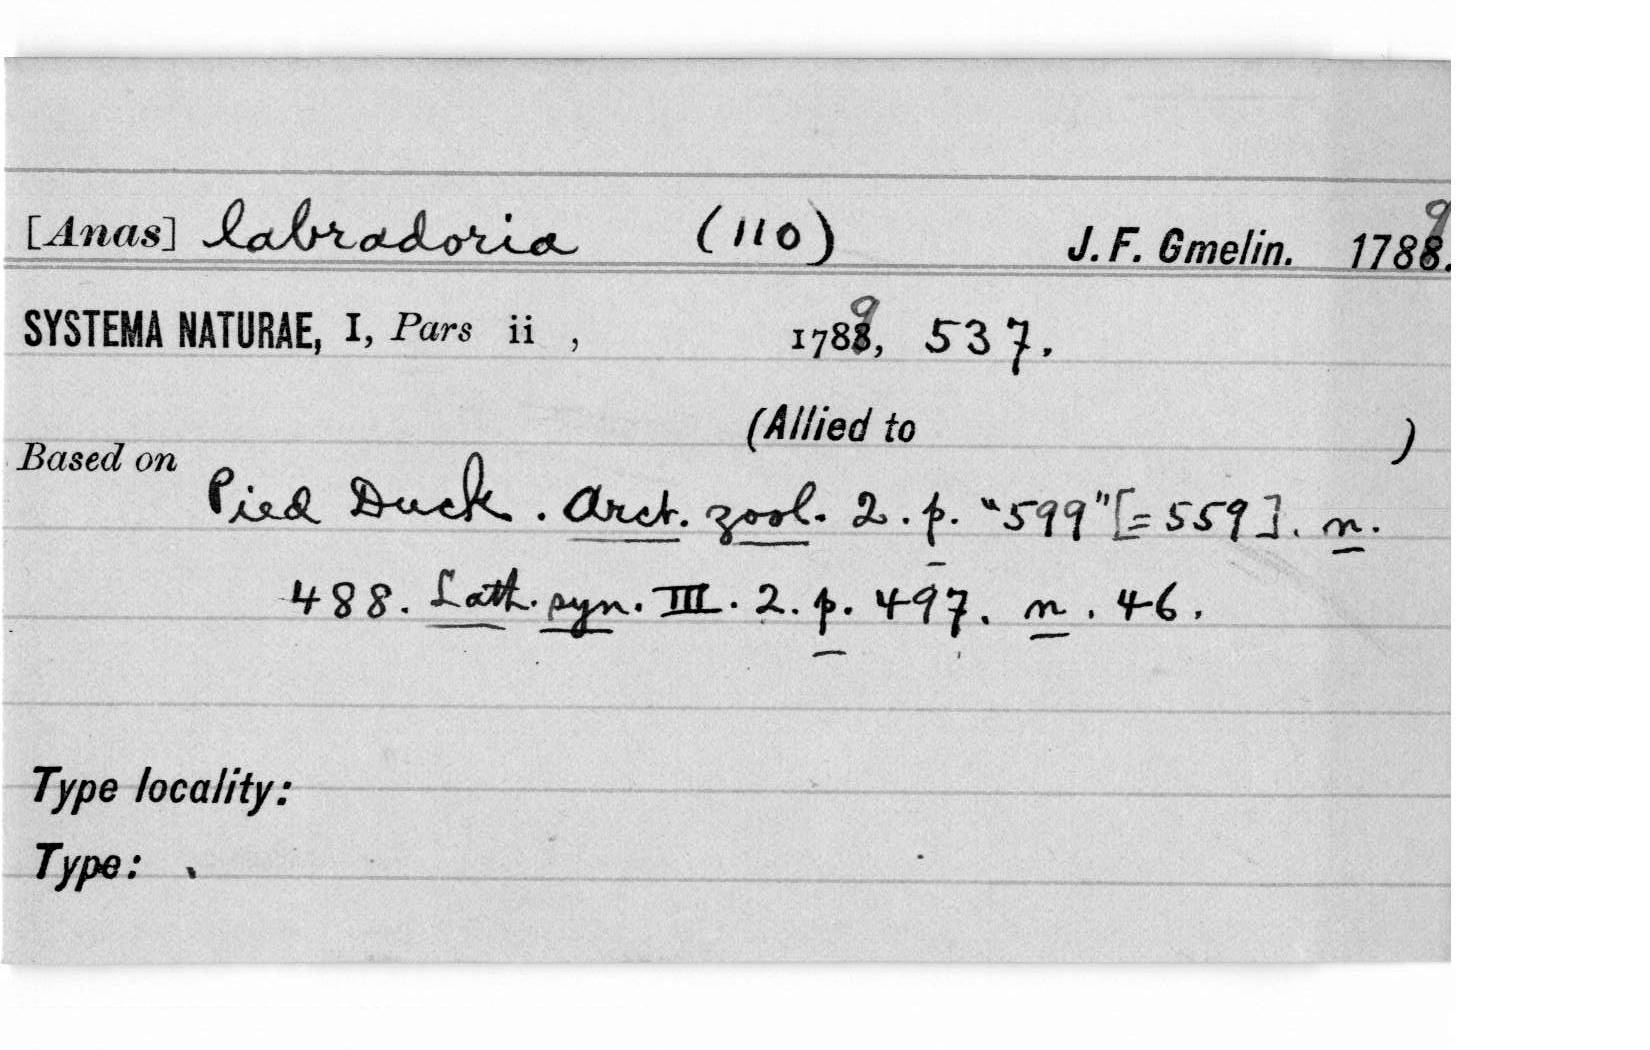 [Anas] labradoria (110) J. F. Gmelin. 1789.
SYSTEMA NATURAE, I, Pars ii , 1789, 537.
(Allied to )
Based on
Pied Duck. Arct. zool. 2. p. "599" [= 559]. n.
488. Lath. syn. III. 2. p. 497. n. 46.
Type locality:
Type: